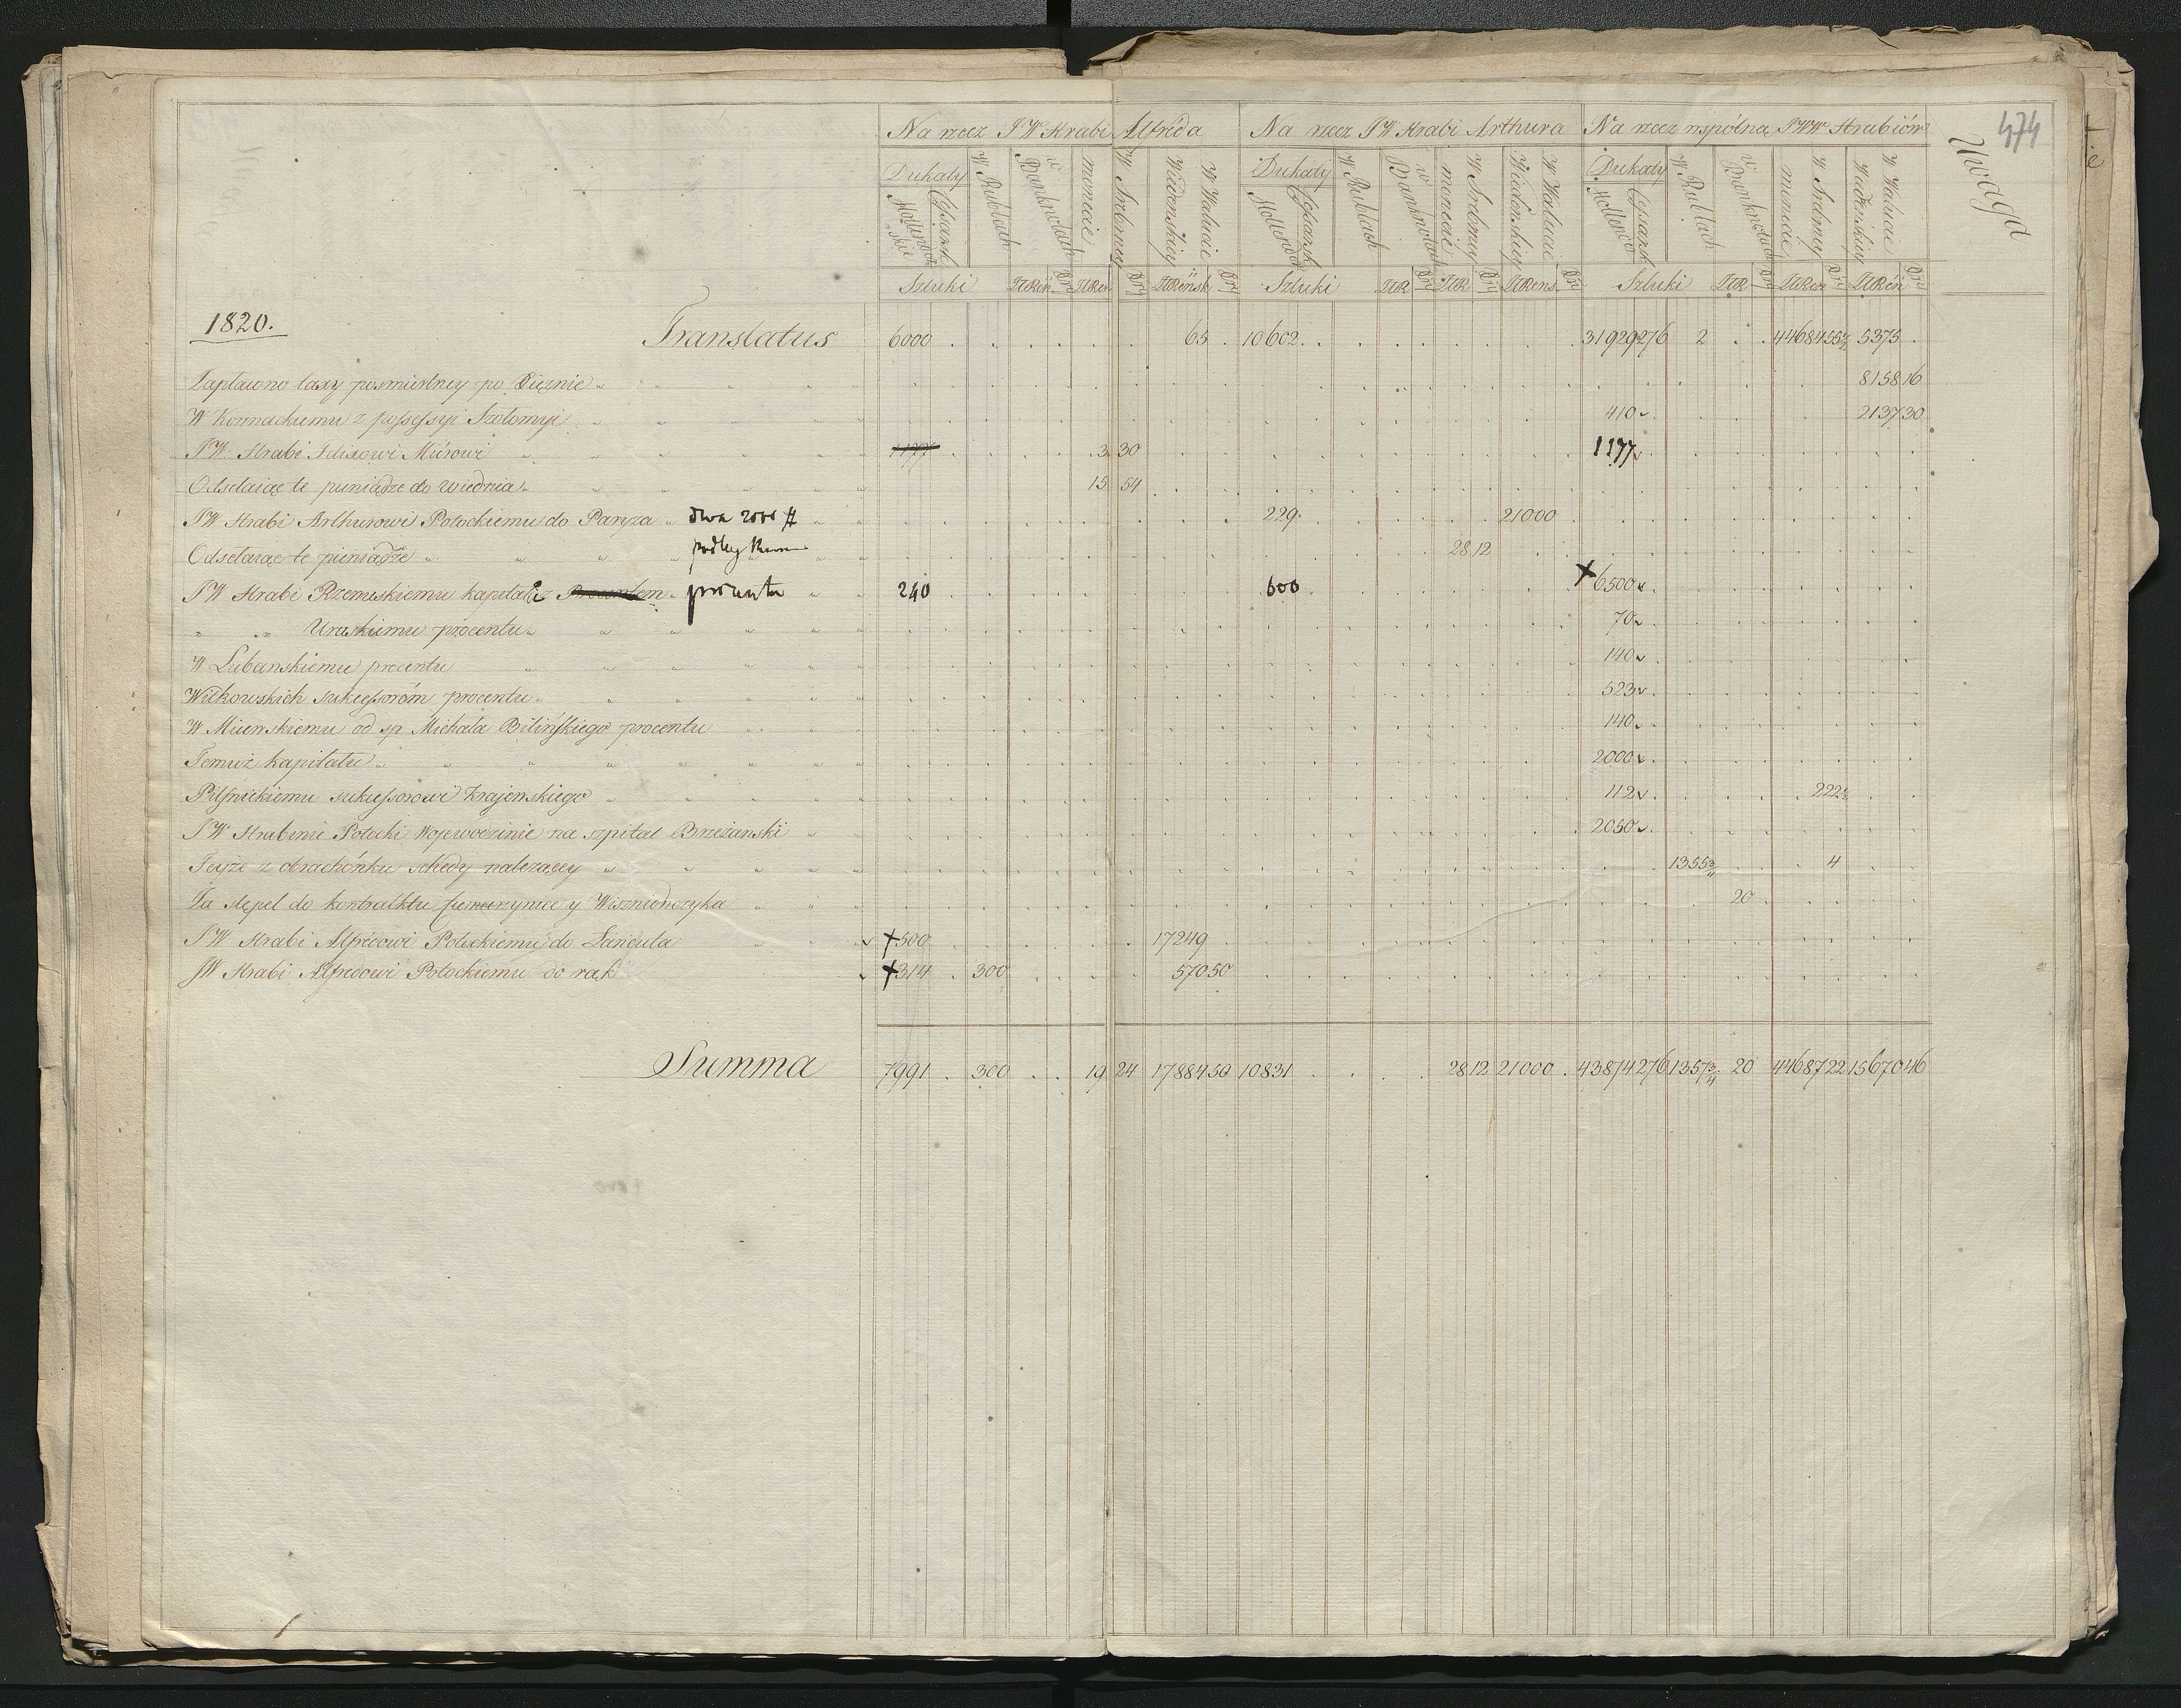 474
Na rzecz JW Hrabi Alfreda Na rzecz JW Hrabi Arthura Na rzecz wspólną JWW Hrabiów Uwaga
Dukaty W Rublach w Banknotach W Srebrney monecie W Walucie Wiedenskiey Dukaty W Rublach w Banknotach W Srebrney monecie W Walucie Wiedenskiey Dukaty W Rublach w Banknotach W Srebrney monecie W Walucie Wiedenskiey
Sztuki Sztuki Sztuki
1820.
Translatus 6000 65 10602 31929 276 2 44684 5375
Zapłacono taxy posmiertney po Xiężnie 8158 16
W Kornackiemu z possessyi Szołomyi 410 2137 30
JW. Hrabi Felixowi Mierowi 3 30 1177
Odsełaiąc te pieniądze do Wiednia 15 54
JW Hrabi Arthurowi Potockiemu do Paryża dwa 2000 # 229 21000
Odsełaiąc te pieniądze podług 28 12
JW Hrabi Rzewuskiemu kapitału procentu 240 600 6500
" " Uruskiemu procentu 70
W Lubanskiemu procentu 140
Witkowskich sukcessorom procentu 523
W Miiewskiemu od sp Michała Bilińskiego procentu 140
Temuż kapitału 2000
Pilsnickiemu sukcessorowi Krajewskiego 112 222
JW Hrabinie Potocki Wojewodzinie na szpital Brzeżanski 2050
Teyże z obrachónku schedy należącey 1355 3/4 4
Za stępel do kontraktu y Wiszniowczyka 20
JW Hrabi Alfredowi Potockiemu do Łancuta 500 17249
JW Hrabi Alfredowi Potockiemu do rak 314 300 570 50
Summa 7991 300 19 24 17884 50 10831 28 12 21000 43874 276 1357 3/4 20 44687 22 15670 46